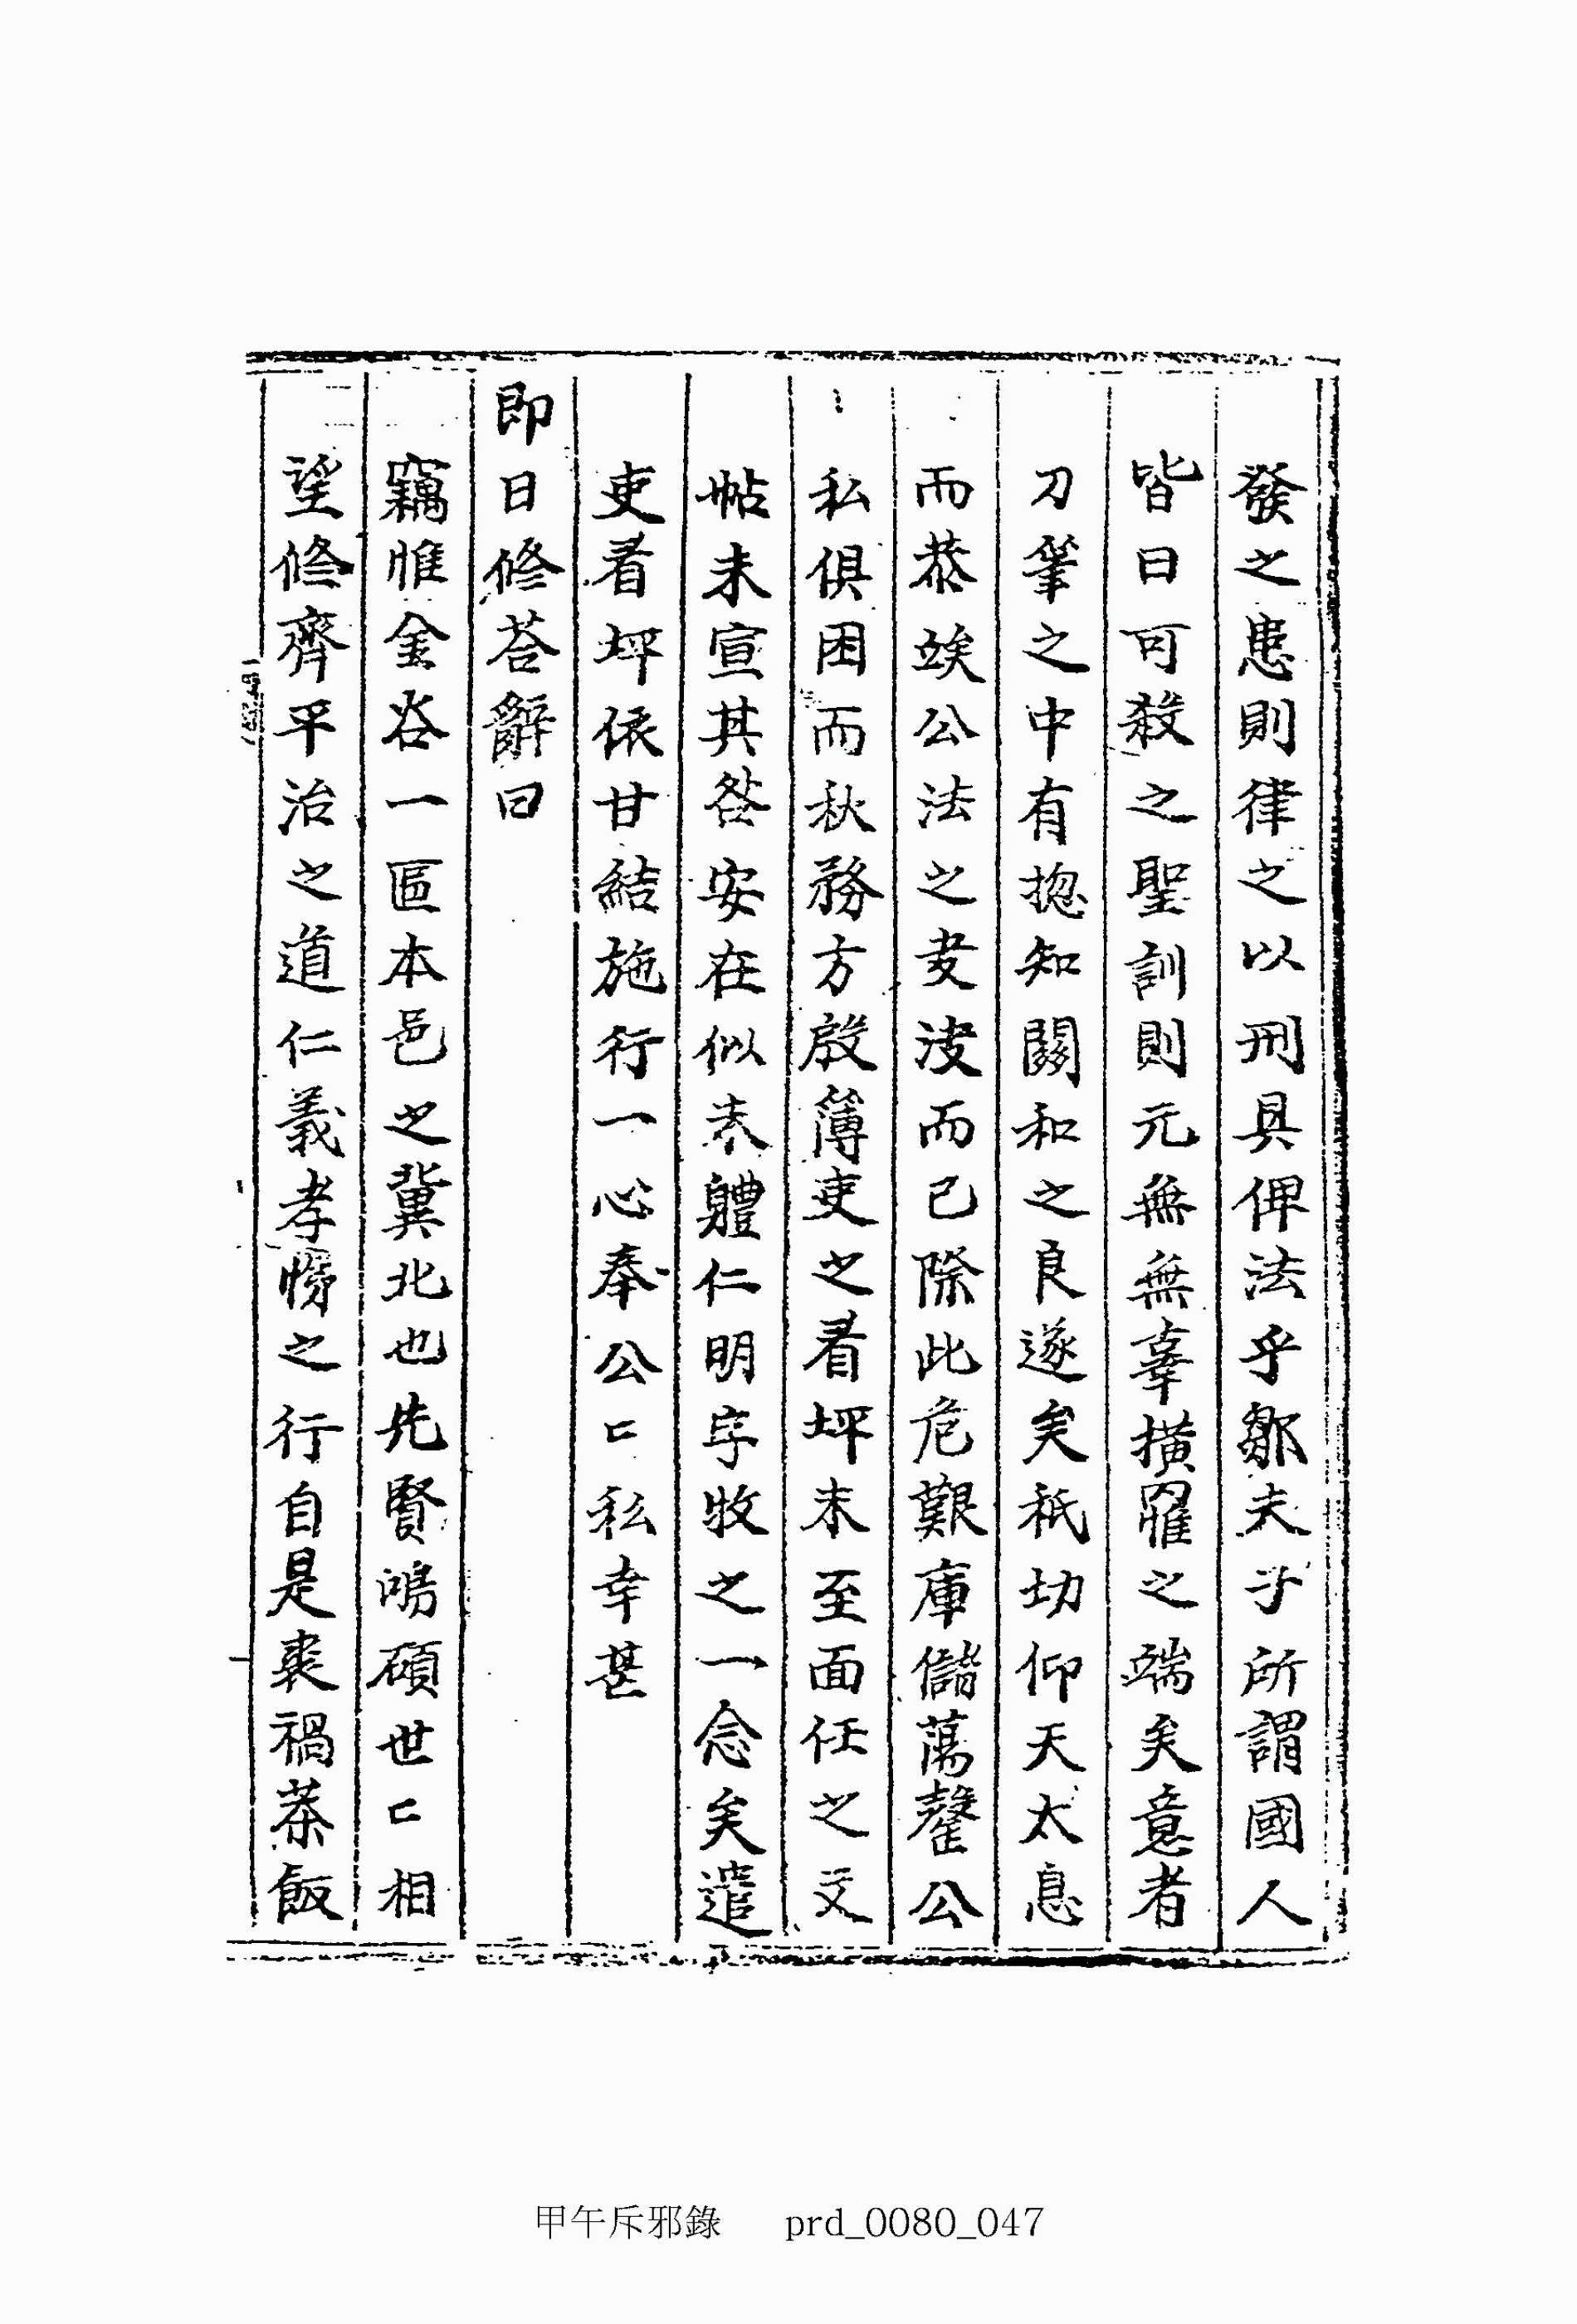 發之患則律之以刑具俾法乎鄒夫子所謂國人
皆曰可殺之聖訓則元無無辜橫罹之端矣意者
刀筆之中有揔知關和之良遂矣秖切仰天太息
而恭竢公法之叏決而已除此危艱庫儲蕩罄公
私俱困而秋務方啟簿吏之看坪未至面任之文
帖未宣其咎安在似未軆仁明字牧之一念矣遣
吏看坪依甘結施行一心奉公〻私幸甚
即日修荅辭曰
竊惟金谷一區本邑之冀北也先賢鴻碩世〻相
望修齊平治之道仁義孝悌之行自是裘褐茶飯
甲午斥邪錄 prd_0080_047